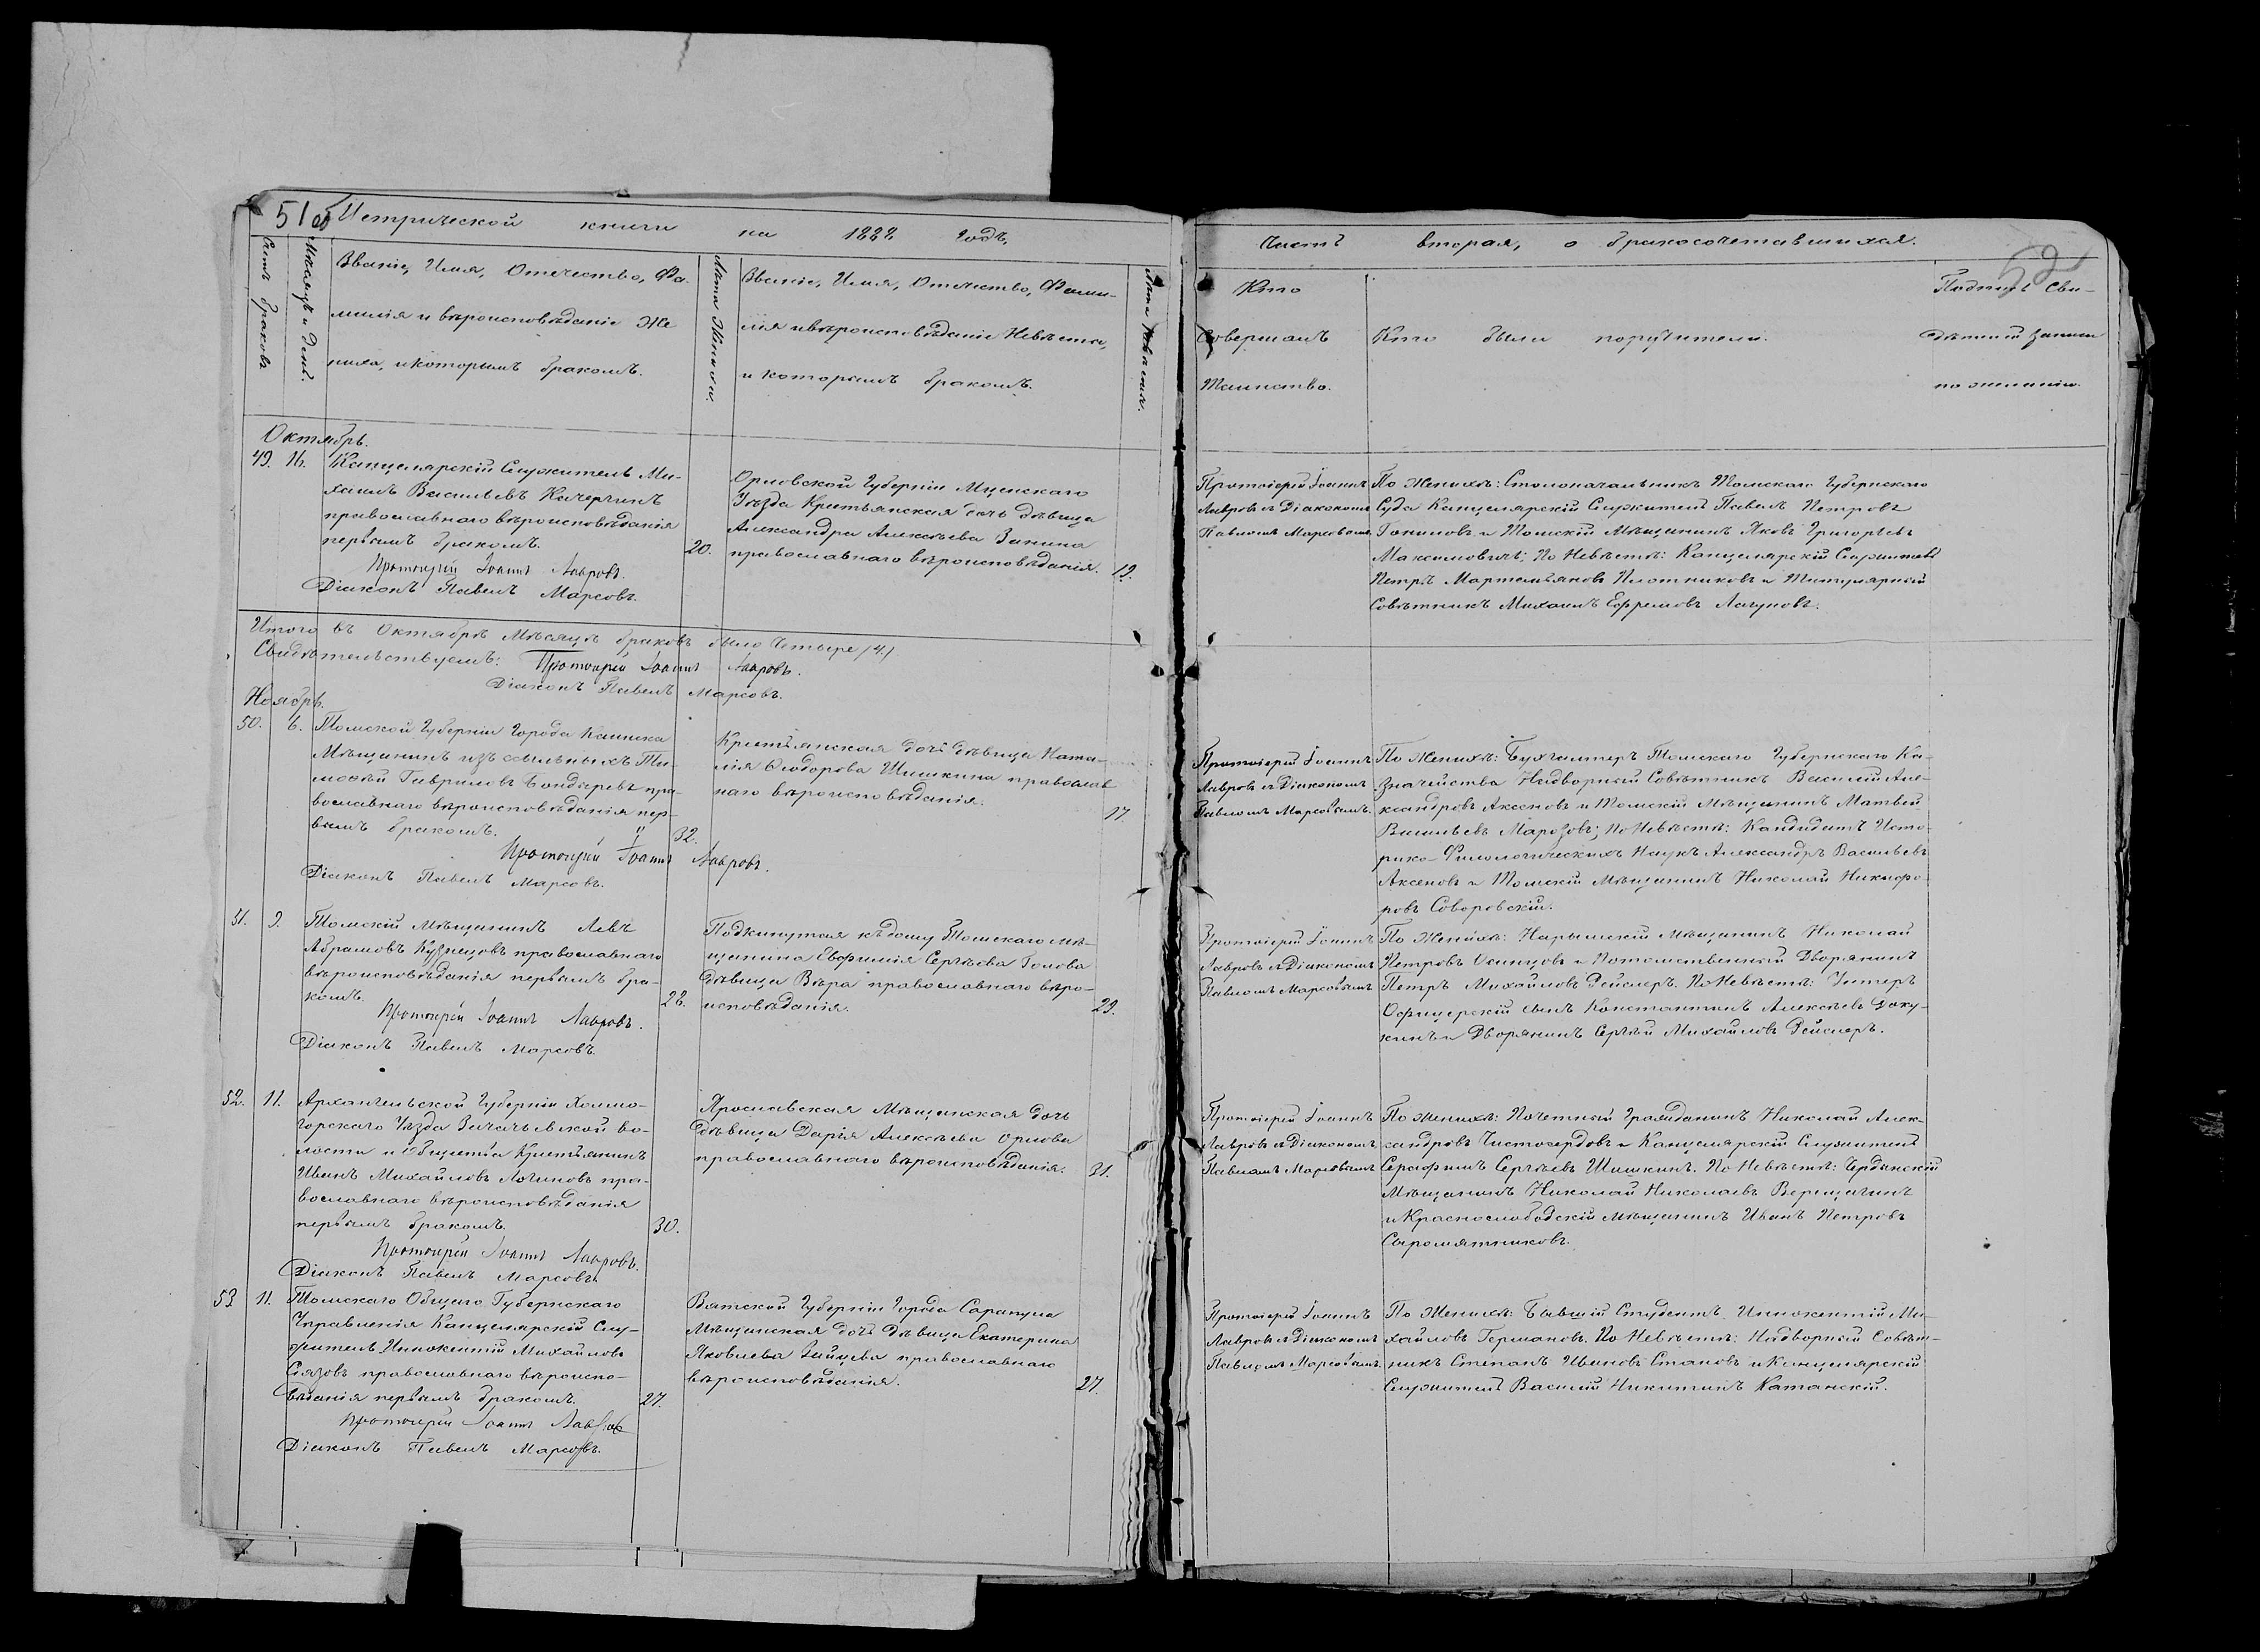 51об Метрической книги на 1888 годъ,
Счетъ браковъ
Мѣсяцъ и день.
Званіе, Имя, Отечество, Фа-
милія и вѣроисповѣданіе Же
ниха, и которымъ бракомъ.
Лѣта Жениха.
Званіе, Имя, Отечество, Фами-
лія и вѣроисповѣданіе Невѣсты,
и которымъ бракомъ.
Лѣта Невѣсты.
Октябрь.
49. 16. Канцелярскій Служитель Ми-
хаилъ Васильевъ Качергинъ
православнаго вѣроисповѣданія
первымъ бракомъ. 20.
Протоіерей Іоаннъ Лавровъ.
Діаконъ Павелъ Марсовъ.
Орловской Губерніи Мценскаго
Уѣзда Крестьянская дочь дѣвица
Александра Алексѣева Занина
православнаго вѣроисповѣданія. 19.
Итого въ Октябрѣ Мѣсяцѣ браковъ было Четыре /4./
Свидѣтельствуемъ: Протоіерей Іоаннъ Лавровъ.
Діаконъ Павелъ Марсовъ.
Ноябрь.
50. 6. Томской Губерніи Города Каинска
Мѣщанинъ изъ ссыльныхъ Ти-
мофѣй Гавриловъ Бондаревъ пра-
вославнаго вѣроисповѣданія пер-
вымъ бракомъ. 32.
Протоіерей Іоаннъ Лавровъ.
Діаконъ Павелъ Марсовъ.
Крестьянская дочь дѣвица Ната-
лія Ѳеодорова Шишкина православ
наго вѣроисповѣданія.
51. 9. Томскій Мѣщанинъ Левъ
Абрамовъ Кузнецовъ православнаго
вѣроисповѣданія первымъ бра-
комъ. 28.
Протоіерей Іоаннъ Лавровъ.
Діаконъ Павелъ Марсовъ.
Подкинутая къ дому Томскаго мѣ-
щанина Евфимія Сергѣева Попова
дѣвица Вѣра православнаго вѣро-
исповѣданія. 29.
52. 11. Архангельской Губерніи Холмо-
горскаго Уѣзда Зачачьевской во-
лости и Общества Крестьянинъ
Иванъ Михайловъ Логиновъ пра-
вославнаго вѣроисповѣданія
первымъ бракомъ. 30.
Протоіерей Іоаннъ Лавровъ.
Діаконъ Павелъ Марсовъ.
Ярославская Мѣщанская дочь
дѣвица Дарія Алексѣева Орлова
православнаго вѣроисповѣданія. 31.
53 11. Томскаго Общаго Губернскаго
Управленія Канцелярскій Слу-
житель Иннокентій Михайловъ
православнаго вѣроиспо-
вѣданія первымъ бракомъ. 27.
Протоіерей Іоаннъ Лавровъ
Діаконъ Павелъ Марсовъ.
Вятской Губерніи Города Сарапула
Мѣщанская дочь дѣвица Екатерина
Яковлева Зайцева православнаго
вѣроисповѣданія. 27.
Часть вторая, о бракосочетавшихся.
52
Кто
Совершалъ
Таинство.
Кто были поручители.
Подпись Сви-
дѣтелей записи
по желанію.
Протоіерей Іоаннъ
Лавровъ съ Діакономъ
Павломъ Марсовымъ.
По Женихѣ: Столоначальникъ Томскаго Губернскаго
Суда Канцелярскій Служитель Павелъ Петровъ
и Томскій Мѣщанинъ Яковъ Григорьевъ
Максимовичъ; по Невѣстѣ: Канцелярскій Служитель
Петръ Мартемьяновъ Плотниковъ и Титулярный
Совѣтникъ Михаилъ Ефремовъ Лагуновъ.
Протоіерей Іоаннъ
Лавровъ съ Діакономъ
Павломъ Марсовымъ.
По Женихѣ: Бухгалтеръ Томскаго Губернскаго Ка-
значейства Надворный Совѣтникъ Василій Але-
ксандровъ Аксеновъ и Томскій Мѣщанинъ Матвей
Васильевъ Марозовъ; по Невѣстѣ: Кандидатъ Исто-
рико-Филологическихъ Наукъ Александръ Васильевъ
Аксеновъ и Томскій Мѣщанинъ Николай Никифо-
ровъ Соворовскій.
Протоіерей Іоаннъ
Лавровъ съ Діакономъ
Павломъ Марсовымъ
По Женихѣ: Нарымскій Мѣщанинъ Николай
Петровъ Осинцовъ и Потомственный Дворянинъ
Петръ Михайловъ Рейслеръ. По Невѣстѣ: Унтеръ
Офицерскій сынъ Константинъ Алексѣевъ Доку-
кинъ и Дворянинъ Сергѣй Михайловъ Рейслеръ.
Протоіерей Іоаннъ
Лавровъ съ Діакономъ
Павломъ Марсовымъ
По Женихѣ: Почетный Гражданинъ Николай Алек-
сандровъ Чистосердовъ и Канцелярскій Служитель
Серафимъ Сергѣевъ Шишкинъ. По Невѣстѣ: Чердынскій
Мѣщанинъ Николай Николаевъ Верещагинъ
и Краснослободскій мѣщанинъ Иванъ Петровъ
Сыромятниковъ.
Протоіерей Іоаннъ
Лавровъ съ Діакономъ
Павломъ Марсовымъ.
По Женихѣ: Бывшій Студентъ Иннокентій Ми-
хайловъ Германовъ. По Невѣстѣ: Надворный Совѣт-
никъ Степанъ Ивановъ Становъ и Канцелярскій
Служитель Василій Никитинъ Катанскій.